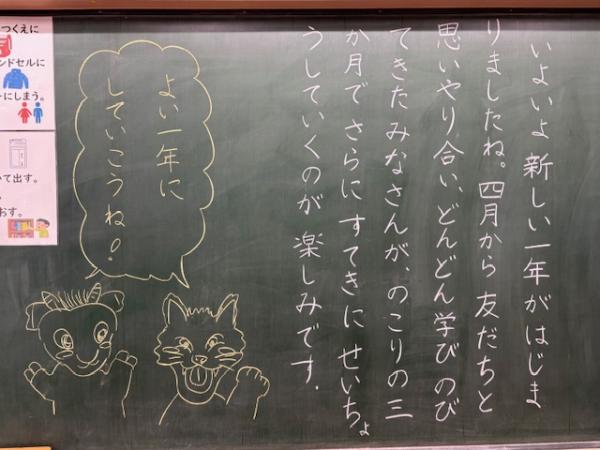 いよいよ 新しい一年がはじま
りましたね。四月から 友だちと
思いやり合い、どんどん学び のび
てきた みなさんが、のこりの三
か月で さらに すてきに せいちょ
うしていくのが 楽しみです.
よい一年に
していこうね!
つくえに
ンドセルに
にしまう。
いて出す。
おす。